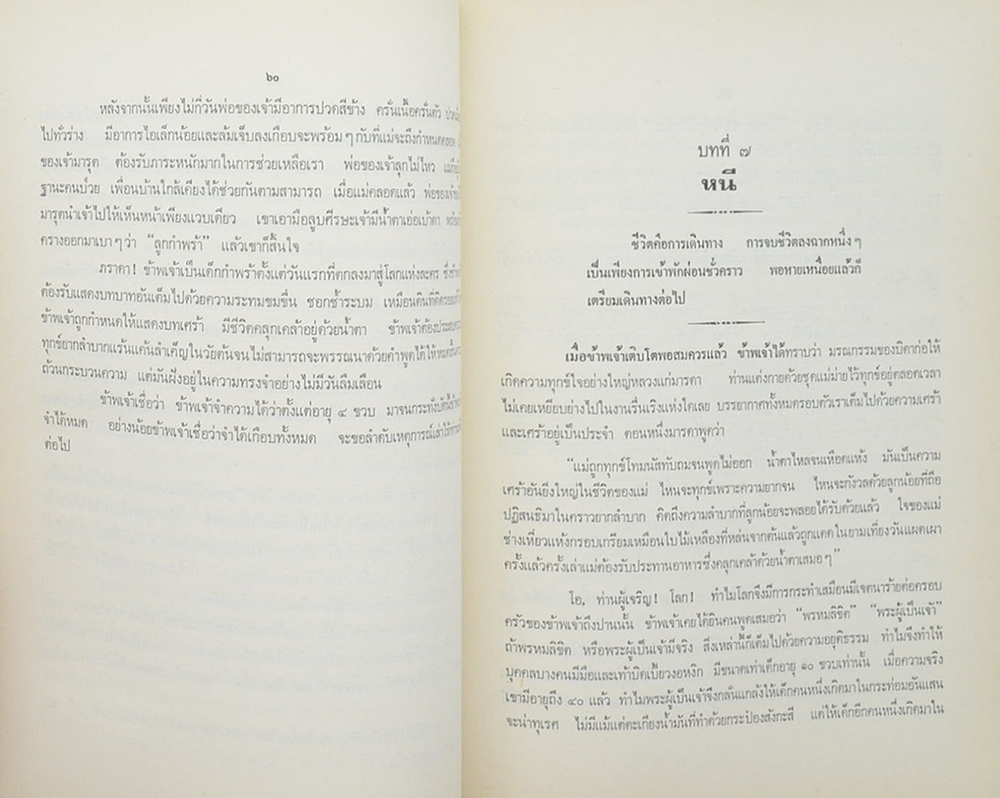 ๖๐
หลังจากนั้นเพียงไม่กี่วันพ่อของเจ้ามีอาการปวดสีข้าง ครั่นเนื้อครั่นตัว
ไปทั่วร่าง มีอาการไอเล็กน้อยและล้มเจ็บลงเกือบจะพร้อมๆ กับที่แม่จะถึงกำหนดคลอด
ของเจ้ามารุต ต้องรับภาระหนักมากในการช่วยเหลือเรา พ่อของเจ้าลุกไม่ไหว
ฐานะคนป่วย เพื่อนบ้านใกล้เคียงได้ช่วยกันตามสามารถ เมื่อแม่คลอดแล้ว พ่อของเจ้า
มารุตนำเจ้าไปให้เห็นหน้าเพียงแวบเดียว เขาเอามือลูบศีรษะเจ้ามีน้ำตาเอ่อเบ้าตา
ครางออกมาเบาๆ ว่า “ลูกกำพร้า” แล้วเขาก็สิ้นใจ
ภราดา! ข้าพเจ้าเป็นเด็กกำพร้าตั้งแต่วันแรกที่ตกลงมาสู่โลกแห่งละคร
ต้องรับแสดงบทบาทอันเต็มไปด้วยความระทมขมขื่น ชอกช้ำระบม เหมือนดินที่
ข้าพเจ้าถูกกำหนดให้แสดงบทเศร้า มีชีวิตคลุกเคล้าอยู่ด้วยน้ำตา ข้าพเจ้าต้อง
ทุกข์ยากลำบากแร้นแค้นสำเค็ญในวัยต้นจนไม่สามารถจะพรรณนาด้วยคำพูดได้
ถ้วนกระบวนความ แต่มันฝังอยู่ในความทรงจำอย่างไม่มีวันลืมเลือน
ข้าพเจ้าเชื่อว่า ข้าพเจ้าจำความได้ว่าตั้งแต่อายุ ๔ ขวบ มาจนกระทั่งบัดนี้
จำได้หมด อย่างน้อยข้าพเจ้าเชื่อว่าจำได้เกือบทั้งหมด จะขอลำดับเหตุการณ์
ต่อไป
บทที่ ๗
หนี
ชีวิตคือการเดินทาง การจบชีวิตลงฉากหนึ่งๆ
เป็นเพียงการเข้าพักผ่อนชั่วคราว พอหายเหนื่อยแล้วก็
เตรียมเดินทางต่อไป
เมื่อข้าพเจ้าเติบโตพอสมควรแล้ว ข้าพเจ้าได้ทราบว่า มรณกรรมของบิดาก่อให้
เกิดความทุกข์ใจอย่างใหญ่หลวงแก่มารดา ท่านแต่งกายด้วยชุดแม่ม่ายไว้ทุกข์อยู่ตลอดเวลา
ไม่เคยเหยียบย่างไปในงานรื่นเริงแห่งใดเลย บรรยากาศทั้งหมดรอบตัวเราเต็มไปด้วยความเศร้า
และเศร้าอยู่เป็นประจำ ตอนหนึ่งมารดาพูดว่า
“แม่ถูกทุกข์โทมนัสทับถมจนพูดไม่ออก น้ำตาไหลจนเหือดแห้ง มันเป็นความ
เศร้าอันยิ่งใหญ่ในชีวิตของแม่ ไหนจะทุกข์เพราะความยากจน ไหนจะกังวลด้วยลูกน้อยที่ถือ
ปฏิสนธิมาในคราวยากลำบาก คิดถึงความลำบากที่ลูกน้อยจะพลอยได้รับด้วยแล้ว ใจของแม่
ช่างเหี่ยวแห้งกรอบเกรียมเหมือนใบไม้เหลืองที่หล่นจากต้นแล้วถูกแดดในยามเที่ยงวันแผดเผา
ครั้งแล้วครั้งเล่าแม่ต้องรับประทานอาหารซึ่งคลุกเคล้าด้วยน้ำตาเสมอๆ”
โอ, ท่านผู้เจริญ! โลก! ทำไมโลกจึงมีการกระทำเสมือนมีเจตนาร้ายต่อครอบ
ครัวของข้าพเจ้าถึงปานนั้น ข้าพเจ้าเคยได้ยินคนพูดเสมอว่า “พรหมลิขิต” “พระผู้เป็นเจ้า”
ถ้าพรหมลิขิต หรือพระผู้เป็นเจ้ามีจริง สิ่งเหล่านี้ก็เต็มไปด้วยความอยุติธรรม ทำไมจึงทำให้
บุคคลบางคนมีมือและเท้าบิดเบี้ยวงอหงิก มีขนาดเท่าเด็กอายุ ๑๐ ขวบเท่านั้น เมื่อความจริง
เขามีอายุถึง ๔๐ แล้ว ทำไมพระผู้เป็นเจ้าจึงกลั่นแกล้งให้เด็กคนหนึ่งเกิดมาในกระท่อมอันแสน
จะน่าทุเรศ ไม่มีแม้แต่ตะเกียงน้ำมันที่ทำด้วยกระป๋องสังกะสี แต่ให้เด็กอีกคนหนึ่งเกิดมาใน